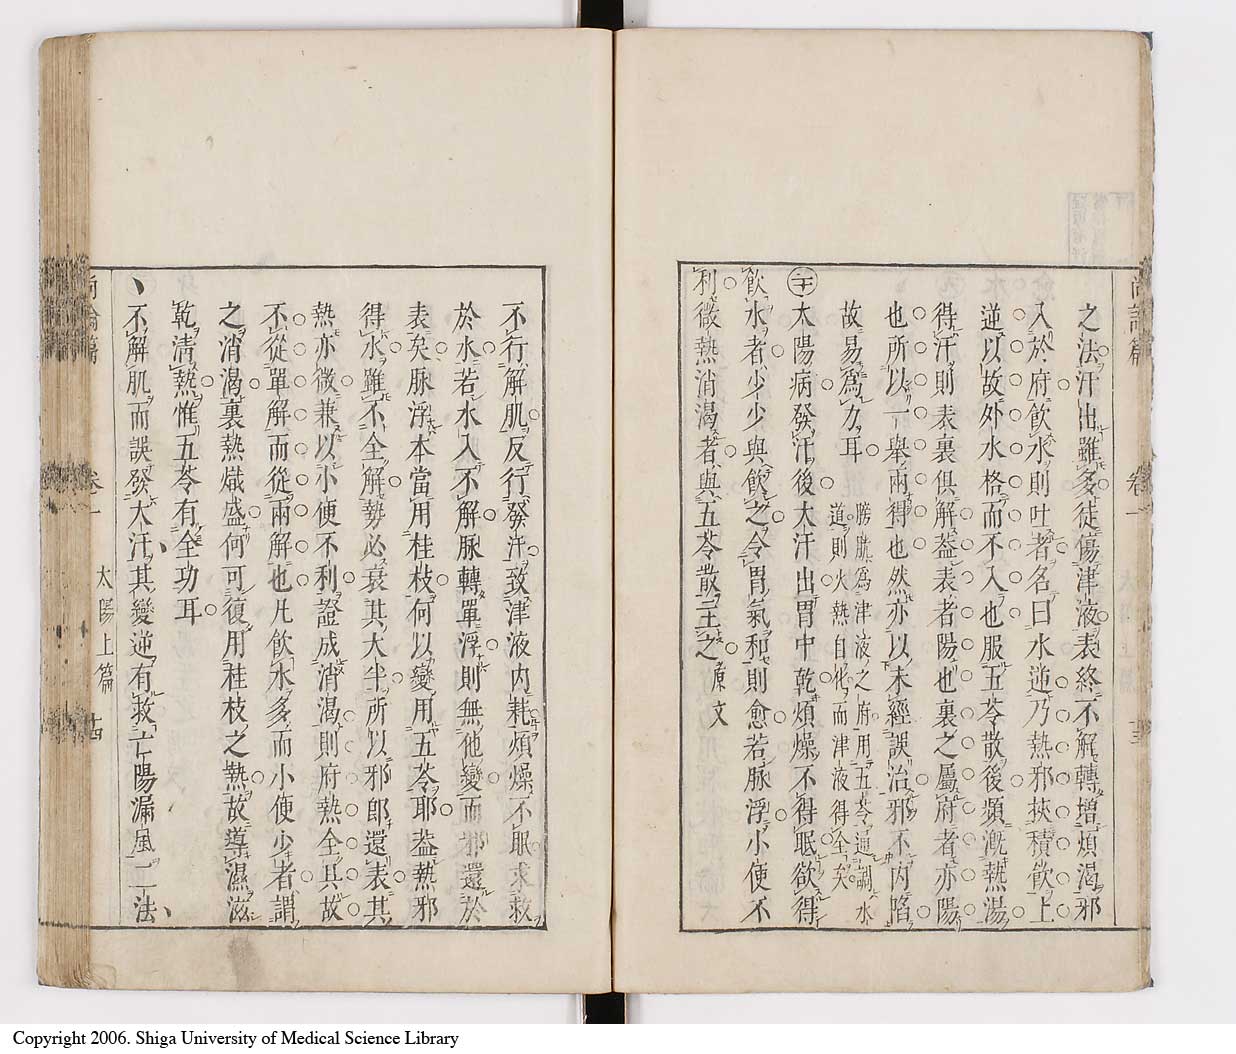 之法汗出雖多徒傷津液表終不解轉增煩渴邪
入於府飲水則吐者名曰水逆乃熱邪挾積飲上
逆以故外水格而不入也服五苓散後頻漑熱湯
得汗則表裏俱解葢表者陽也裏之屬府者亦陽
也所以一舉兩得也然亦以未經誤治邪不内陷
故易爲力耳
膀胱爲津液之府用五苓通調水
道則火熱自化而津液得全矣
㊁十太陽病發汗後大汗出胃中乾煩燥不得眠欲得
飲水者少少與飲之令胃氣和則愈若脉浮小便不
利微熱消渴者與五苓散主之原文
尚論篇
卷一
不行解肌反行發汗致津液内耗煩燥不眠求救
於水若水入不解脉轉單浮則無他變而邪還於
表矣脉浮本當用桂枝何以變用五苓耶葢熱邪
得水雖不全解勢必衰其大半所以邪郎還表其
熱亦微兼以小便不利證成消渴則府熱全具故
不從單解而從兩解也凡飲水多而小便少者謂
之消渴裏熱熾盛何可復用桂枝之熱故導濕滋
乾清熱惟五苓有全功耳
不解肌而誤發大汗其變逆有救亡陽漏風二法
尚論篇
卷一
太陽上篇
十四
Copyright 2006. Shiga University of Medical Science Library